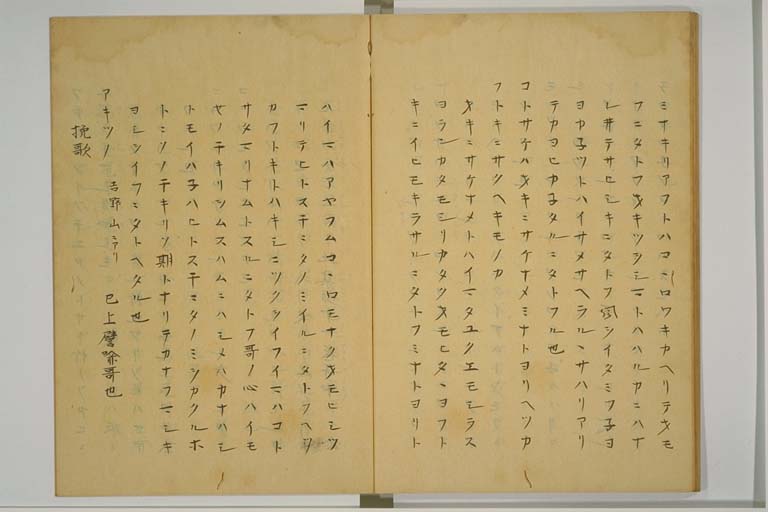 ミナキリアフトハコヽロワキカヘリテオモ
フニタトフオキツシマトハハルカニハナ
レ井テサヒシキニタトフ風シイタミフ子ヨ
ヨカ子ツトハイサメサヘラルヽサハリアリ
テカヨヒカ子タルニタトフル也
コトサケハオキニサケナメミナトヨリヘツカ
フトキニサクヘキモノカ
オキニサケナメトハイマタユクエモシラス
ヨラヒカタモシリカタクオモヒタヽヨフト
キニイヒモキラサルニタトフミナトヨリト
ハイマハアヤフムコヽロモナクオモヒシツ
マリテヒトスチニタノミイルニタトフヘツ
カフトキトハキシニツクヲイフイマハコト
サタマリナムトスルニタトフ哥ノ心ハイモ
セノチキリヲムスハムニハシメハカナハシ
トモイハ子ハヒトスチニタノミヲカクルホ
トニソノチキリノ期トナリテカナフマシキ
ヨシヲイフニタトヘタル也
アキツノ 吉野山ニアリ 已上譬喩哥也
挽歌